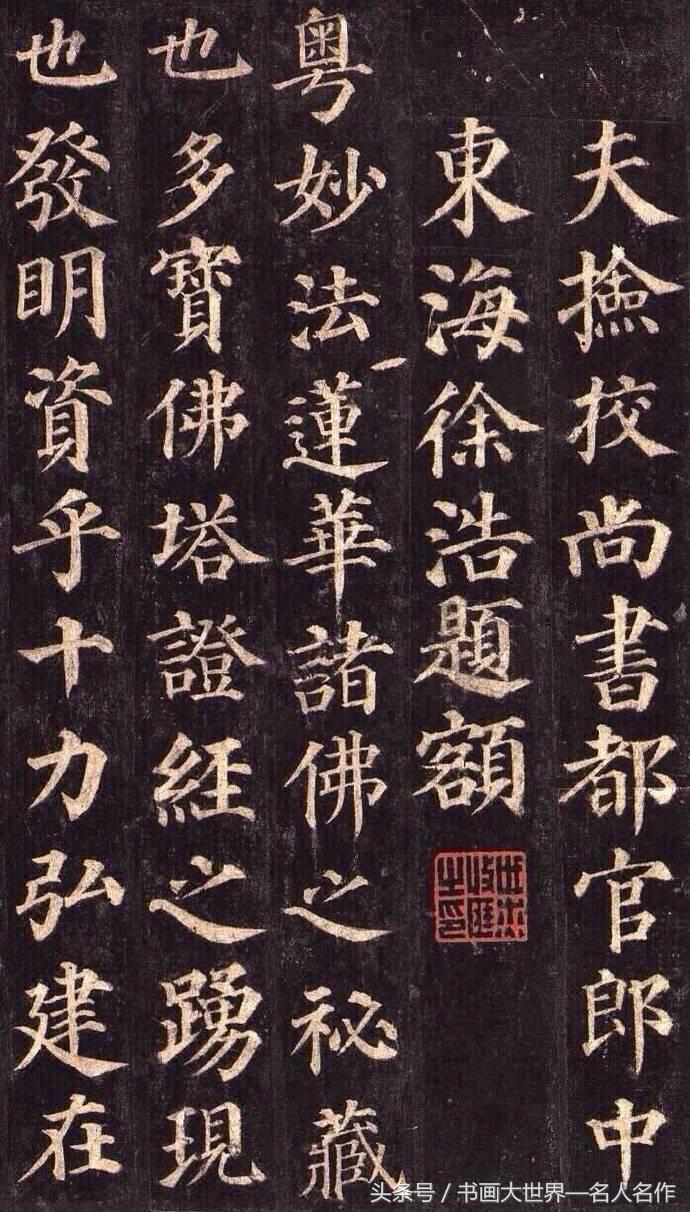 夫撿挍尚書都官郎中
東海徐浩題額
粤妙法蓮華諸佛之祕藏
也多寶佛塔證経之踴現
也發明資乎十力弘建在
头条号 / 书画大世界—名人名作